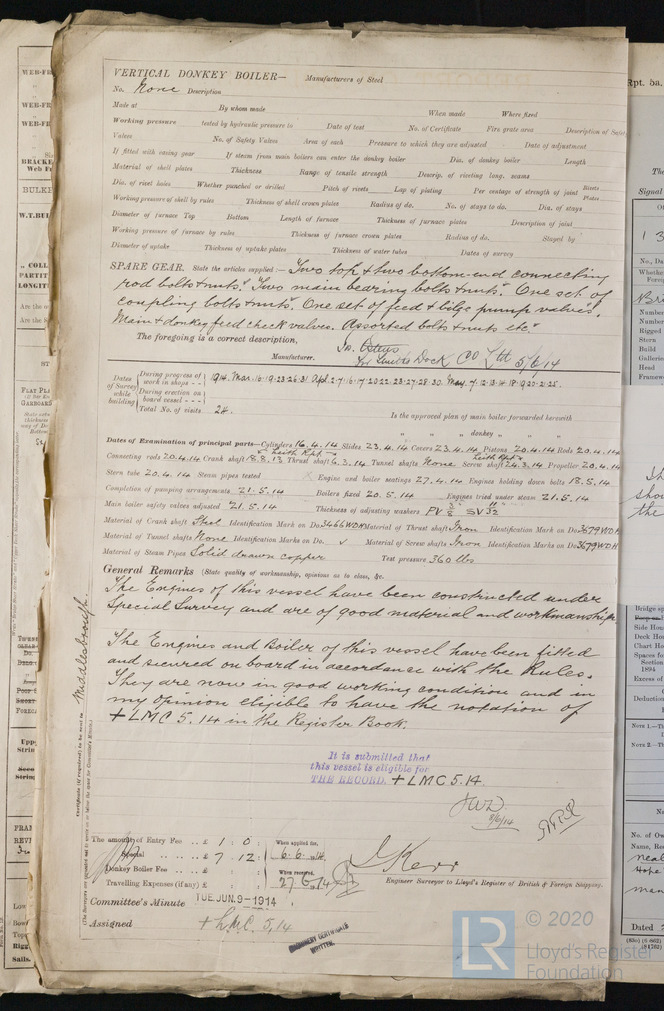 VERTICAL DONKEY BOILER— Manufacturers of Steel
No. None Description
Made at By whom made When made Where fixed
Working pressure tested by hydraulic pressure to Date of test No. of Certificate Fire grate area Description of Safety
Valves No. of Safety Valves Area of each Pressure to which they are adjusted Date of adjustment
If fitted with easing gear If steam from main boilers can enter the donkey boiler Dia. of donkey boiler Length
Material of shell plates Thickness Range of tensile strength Descrip. of riveting long. seams
Dia. of rivet holes Whether punched or drilled Pitch of rivets Lap of plating Per centage of strength of joint Rivets Plates
Working pressure of shell by rules Thickness of shell crown plates Radius of do. No. of stays to do. Dia. of stays
Diameter of furnace Top Bottom Length of furnace Thickness of furnace plates Description of joint
Working pressure of furnace by rules Thickness of furnace crown plates Radius of do. Stayed by
Diameter of uptake Thickness of uptake plates Thickness of water tubes Dates of survey
SPARE GEAR. State the articles supplied:— Two top & two bottom-end connecting
rod bolts & nuts. Two main bearing bolts & nuts. One set of
coupling bolts & nuts. One set of feed & bilge pump valves.
Main & donkey feed check valves. Assorted bolts & nuts etc.
The foregoing is a correct description,
Dock Co Ltd 5/6/14
Manufacturer.
Dates of Survey while building
During progress of work in shops - - 1914 Mar. 16.19.23.26.31 Apl. 2.7.16.17.20.22.23.27.28.30. May. 7.12.13.14.18.19.20.21.25.
During erection on board vessel - - -
Total No. of visits 24.
Is the approved plan of main boiler forwarded herewith
" " " donkey " "
Dates of Examination of principal parts—Cylinders 16.4.14 Slides 23.4.14 Covers 23.4.14 Pistons 20.4.14 Rods 20.4.14
Connecting rods 20.4.14 Crank shaft 18.8.13 Leith Rpt Thrust shaft 6.3.14 Tunnel shafts None Screw shaft 24.3.14 Leith Rpt Propeller 20.4.14
Stern tube 20.4.14 Steam pipes tested Engine and boiler seatings 27.4.14 Engines holding down bolts 18.5.14
Completion of pumping arrangements 21.5.14 Boilers fixed 20.5.14 Engines tried under steam 21.5.14
Main boiler safety valves adjusted 21.5.14 Thickness of adjusting washers PV SV 11/32
Material of Crank shaft Steel Identification Mark on Do. 3466WDH Material of Thrust shaft Iron Identification Mark on Do. 3679WDH
Material of Tunnel shafts None Identification Marks on Do. ✓ Material of Screw shafts Iron Identification Marks on Do. 3679WDH
Material of Steam Pipes Solid drawn copper Test pressure 360 lbs
General Remarks (State quality of workmanship, opinions as to class, &c.
The Engines of this vessel have been constructed under
Special Survey and are of good material and workmanship.
The Engines and Boiler of this vessel have been fitted
and secured on board in accordance with the Rules.
They are now in good working condition and in
my opinion eligible to have the notation of
+ LMC 5.14 in the Register Book.
Certificate (if required) to be sent to Middlesbrough.
It is submitted that
this vessel is eligible for
THE RECORD. + LMC 5.14.
JWD.
9/6/14
The amount of Entry Fee .. £ 1 : 0 : When applied for,
Special .. £ 7 . 12 : 6.6.14.
Donkey Boiler Fee .. £ : : When received,
Travelling Expenses (if any) £ : : 27.6.14
J Kerr
Engineer Surveyor to Lloyd's Register of British & Foreign Shipping.
Committee's Minute TUE. JUN. 9 - 1914
Assigned + LMC. 5,14
MACHINERY CERTIFICATE
WRITTEN.
© 2020
LR Lloyd's Register
Foundation
Rpt. 5a.